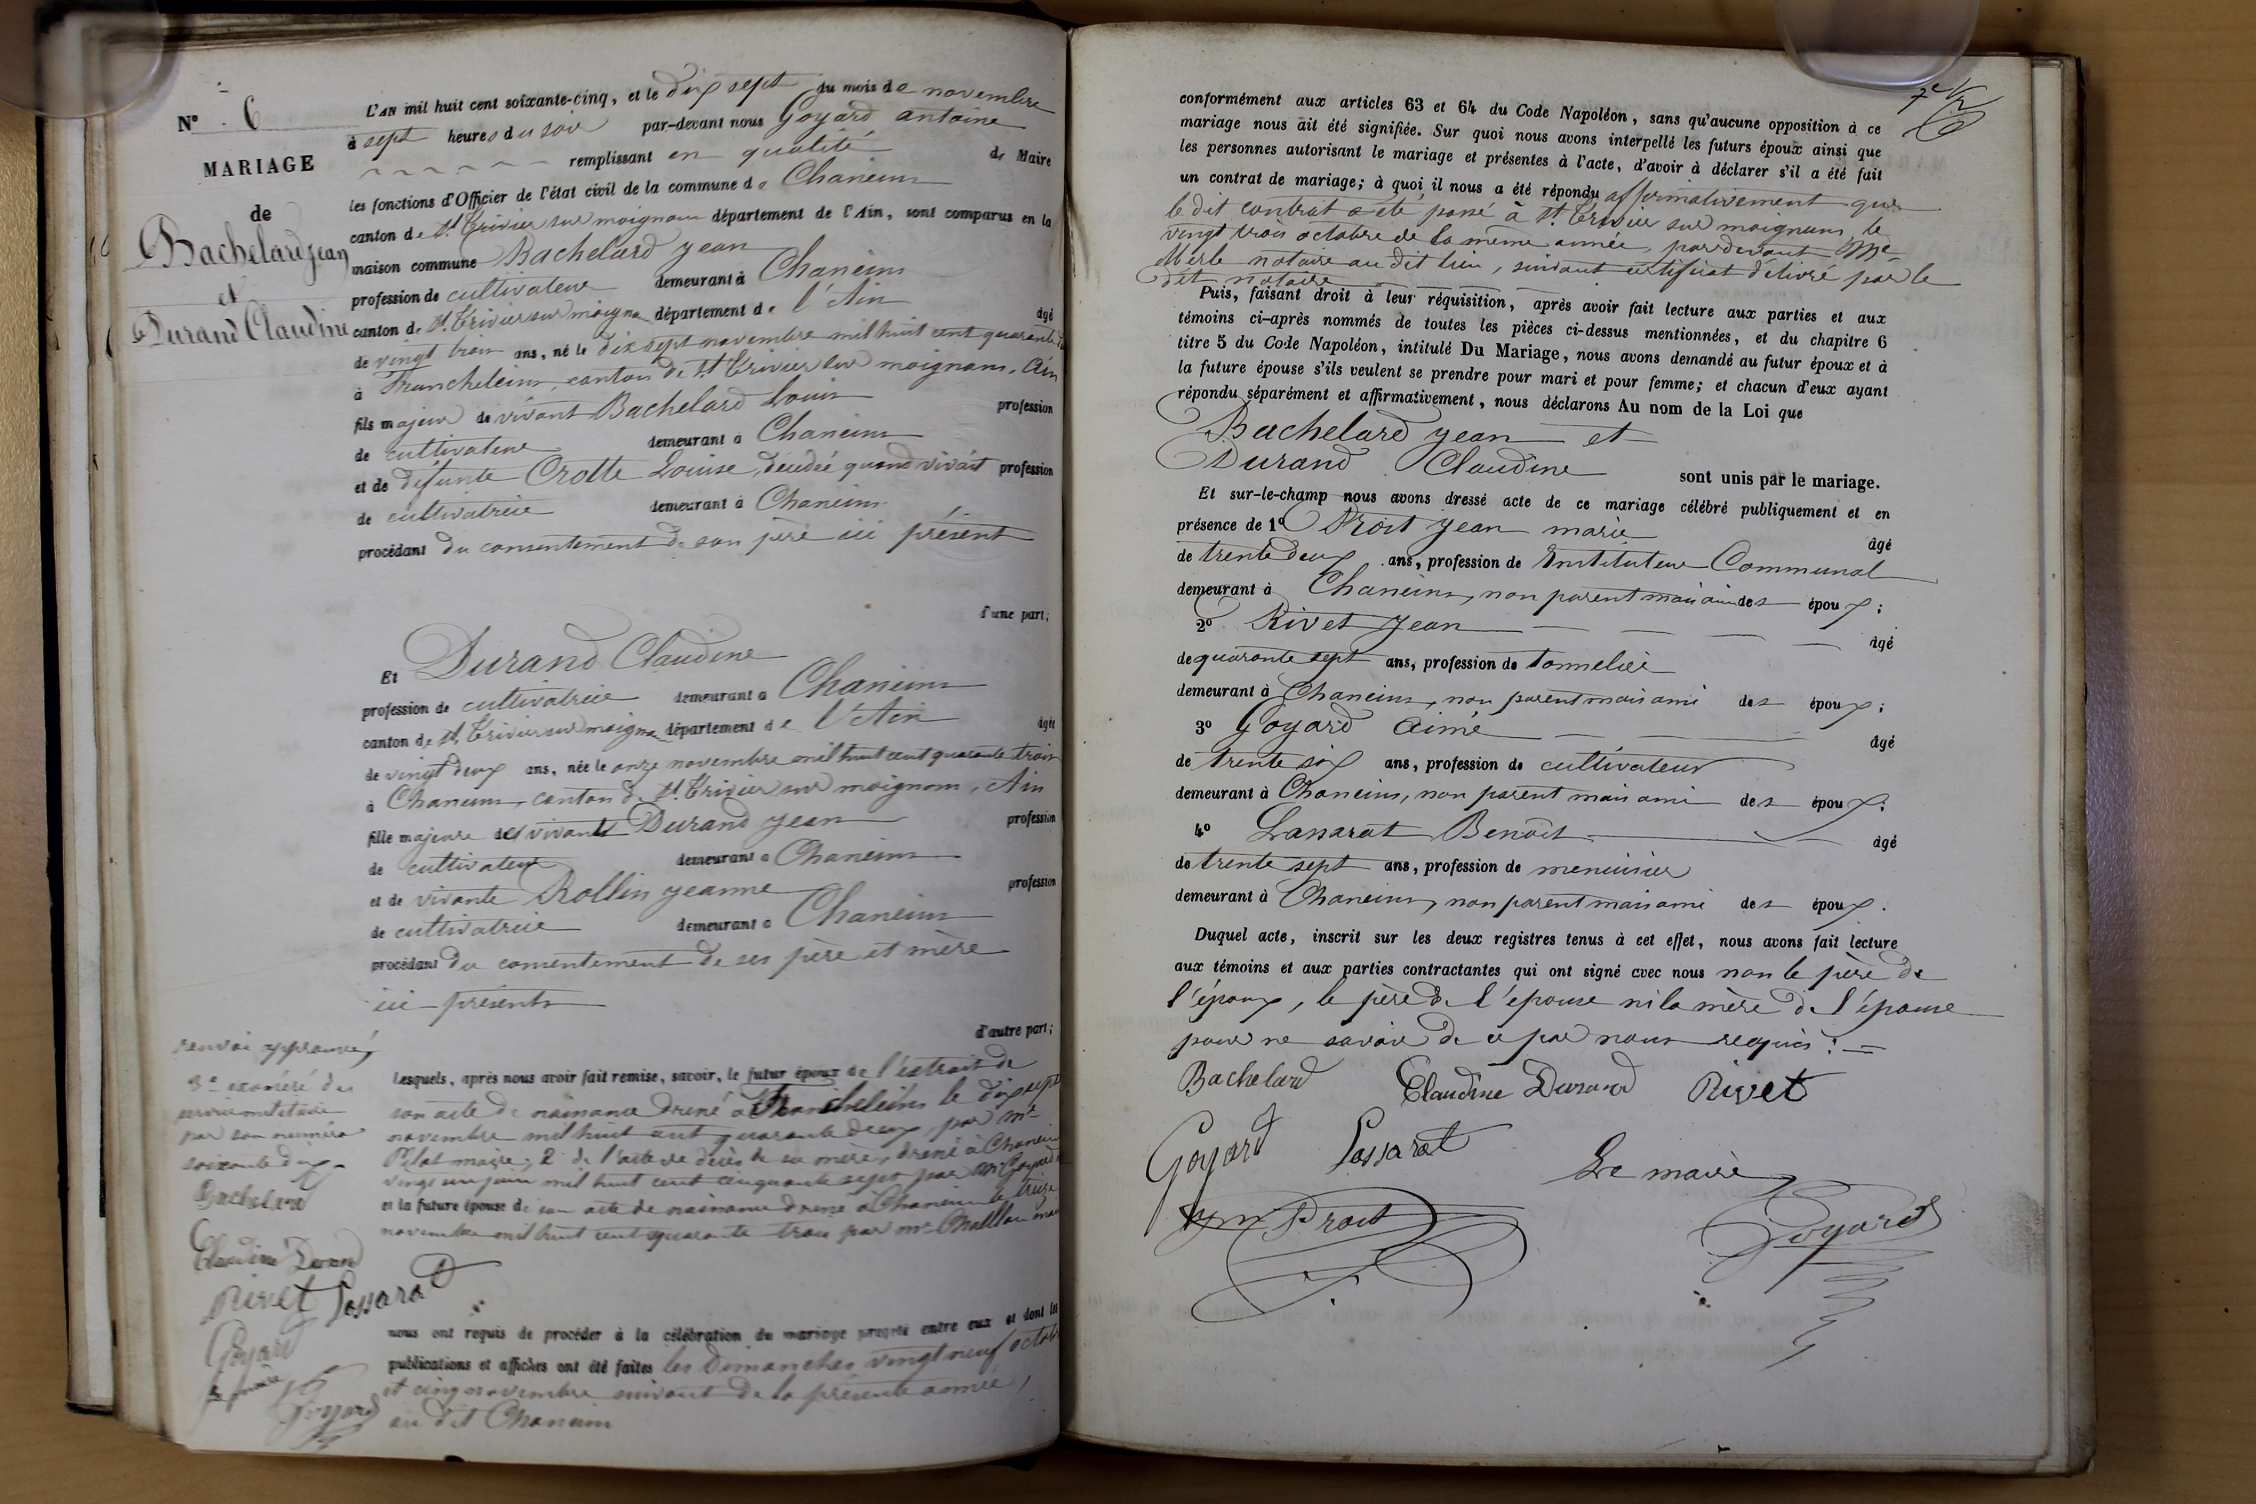 N° 6
MARIAGE
de
Bachelard Jean
et
Durand Claudine
L'AN mil huit cent soixante-cinq, et le dix sept du mois de novembre
à sept heures du soir par-devant nous Goyard antoine
remplissant en qualité de Maire
les fonctions d'Officier de l'état civil de la commune de Chaneins
canton de St. Trivier sur moignans département de l'Ain, sont comparus en la
maison commune Bachelard Jean
profession de cultivateur demeurant à Chaneins
canton de St. Trivier sur moigna département de l'Ain âgé
de vingt trois ans, né le dix sept novembre mil huit cent quarante
à Francheleins, canton de St Trivier sur moignans, Ain
fils majeur de vivant Bachelard Louis profession
de cultivateur demeurant à Chaneins
et de défunte Crotte Louise, décédée quand vivait profession
de cultivatrice demeurant à Chaneins
procédant du consentement de son père ici présent
d'une part;
Et Durand Claudine
profession de cultivatrice demeurant à Chaneins
canton de St. Trivier sur moigna département de l'Ain âgée
de vingt deux ans, née le onze novembre mil huit cent quarante trois
à Chaneins, canton de St. Trivier sur moignans, Ain
fille majeure de vivant Durand Jean profession
de cultivateur demeurant à Chaneins
et de vivante Rollin Jeanne profession
de cultivatrice demeurant à Chaneins
procédant du consentement de ses père et mère
ici présents
d'autre part;
renvoi approuvé
3° exonéré du
service militaire
par son numéro
soixante dix
Bachelard
Claudine Durand
Rivet Lassarat
Goyard
Le maire
Goyard
Lesquels, après nous avoir fait remise, savoir, le futur époux de l'extrait de
son acte de naissance dressé à Francheleins le dix sept
novembre mil huit cent quarante deux, par Mr
maire; 2° de l'acte de décès de sa mère, dressé à Chaneins
vingt un juin mil huit cent cinquante sept par Mr Goyard
et la future épouse de son acte de naissance dressé à Chaneins le treize
novembre mil huit cent quarante trois par Mr
nous ont requis de procéder à la célébration du mariage projeté entre eux et dont les
publications et affiches ont été faites les Dimanches vingt neuf octobre
et cinq novembre suivant de la présente année,
au dit Chaneins
conformément aux articles 63 et 64 du Code Napoléon, sans qu'aucune opposition à ce
mariage nous ait été signifiée. Sur quoi nous avons interpellé les futurs époux ainsi que
les personnes autorisant le mariage et présentes à l'acte, d'avoir à déclarer s'il a été fait
un contrat de mariage; à quoi il nous a été répondu affirmativement que
le dit contrat a été passé à St. Trivier sur moignans, le
vingt trois octobre de la même année, par devant Me
Merle notaire au dit lieu, suivant certificat délivré par le
dit notaire
Puis, faisant droit à leur réquisition, après avoir fait lecture aux parties et aux
témoins ci-après nommés de toutes les pièces ci-dessus mentionnées, et du chapitre 6
titre 5 du Code Napoléon, intitulé Du Mariage, nous avons demandé au futur époux et à
la future épouse s'ils veulent se prendre pour mari et pour femme; et chacun d'eux ayant
répondu séparément et affirmativement, nous déclarons Au nom de la Loi que
Bachelard Jean et
Durand Claudine sont unis par le mariage.
Et sur-le-champ nous avons dressé acte de ce mariage célébré publiquement et en
présence de 1° Proit Jean marie âgé
de trente deux ans, profession de Instituteur Communal
demeurant à Chaneins, non parent mais ami des époux;
2° Rivet Jean âgé
de quarante sept ans, profession de tonnelier
demeurant à Chaneins, non parent mais ami des époux;
3° Goyard Aimé âgé
de trente six ans, profession de cultivateur
demeurant à Chaneins, non parent mais ami des époux;
4° Lassarat Benoit âgé
de trente sept ans, profession de menuisier
demeurant à Chaneins, non parent mais ami des époux.
Duquel acte, inscrit sur les deux registres tenus à cet effet, nous avons fait lecture
aux témoins et aux parties contractantes qui ont signé avec nous non le père de
l'époux, le père de l'épouse ni la mère de l'épouse
pour ne savoir de ce par nous requis:
Bachelard Claudine Durand Rivet
Goyard Lassarat
Le maire
Proit Goyard